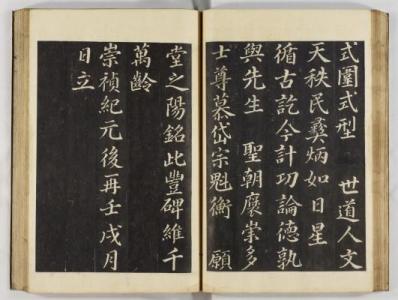 式圍式型 世道人文
天秩民彝炳如日星
循古訖今計功論德孰
與先生 聖朝褒崇多
士尊慕岱宗魁衡 願
堂之陽銘此豐碑維千
萬齡
崇禎紀元後再壬戌月
日立